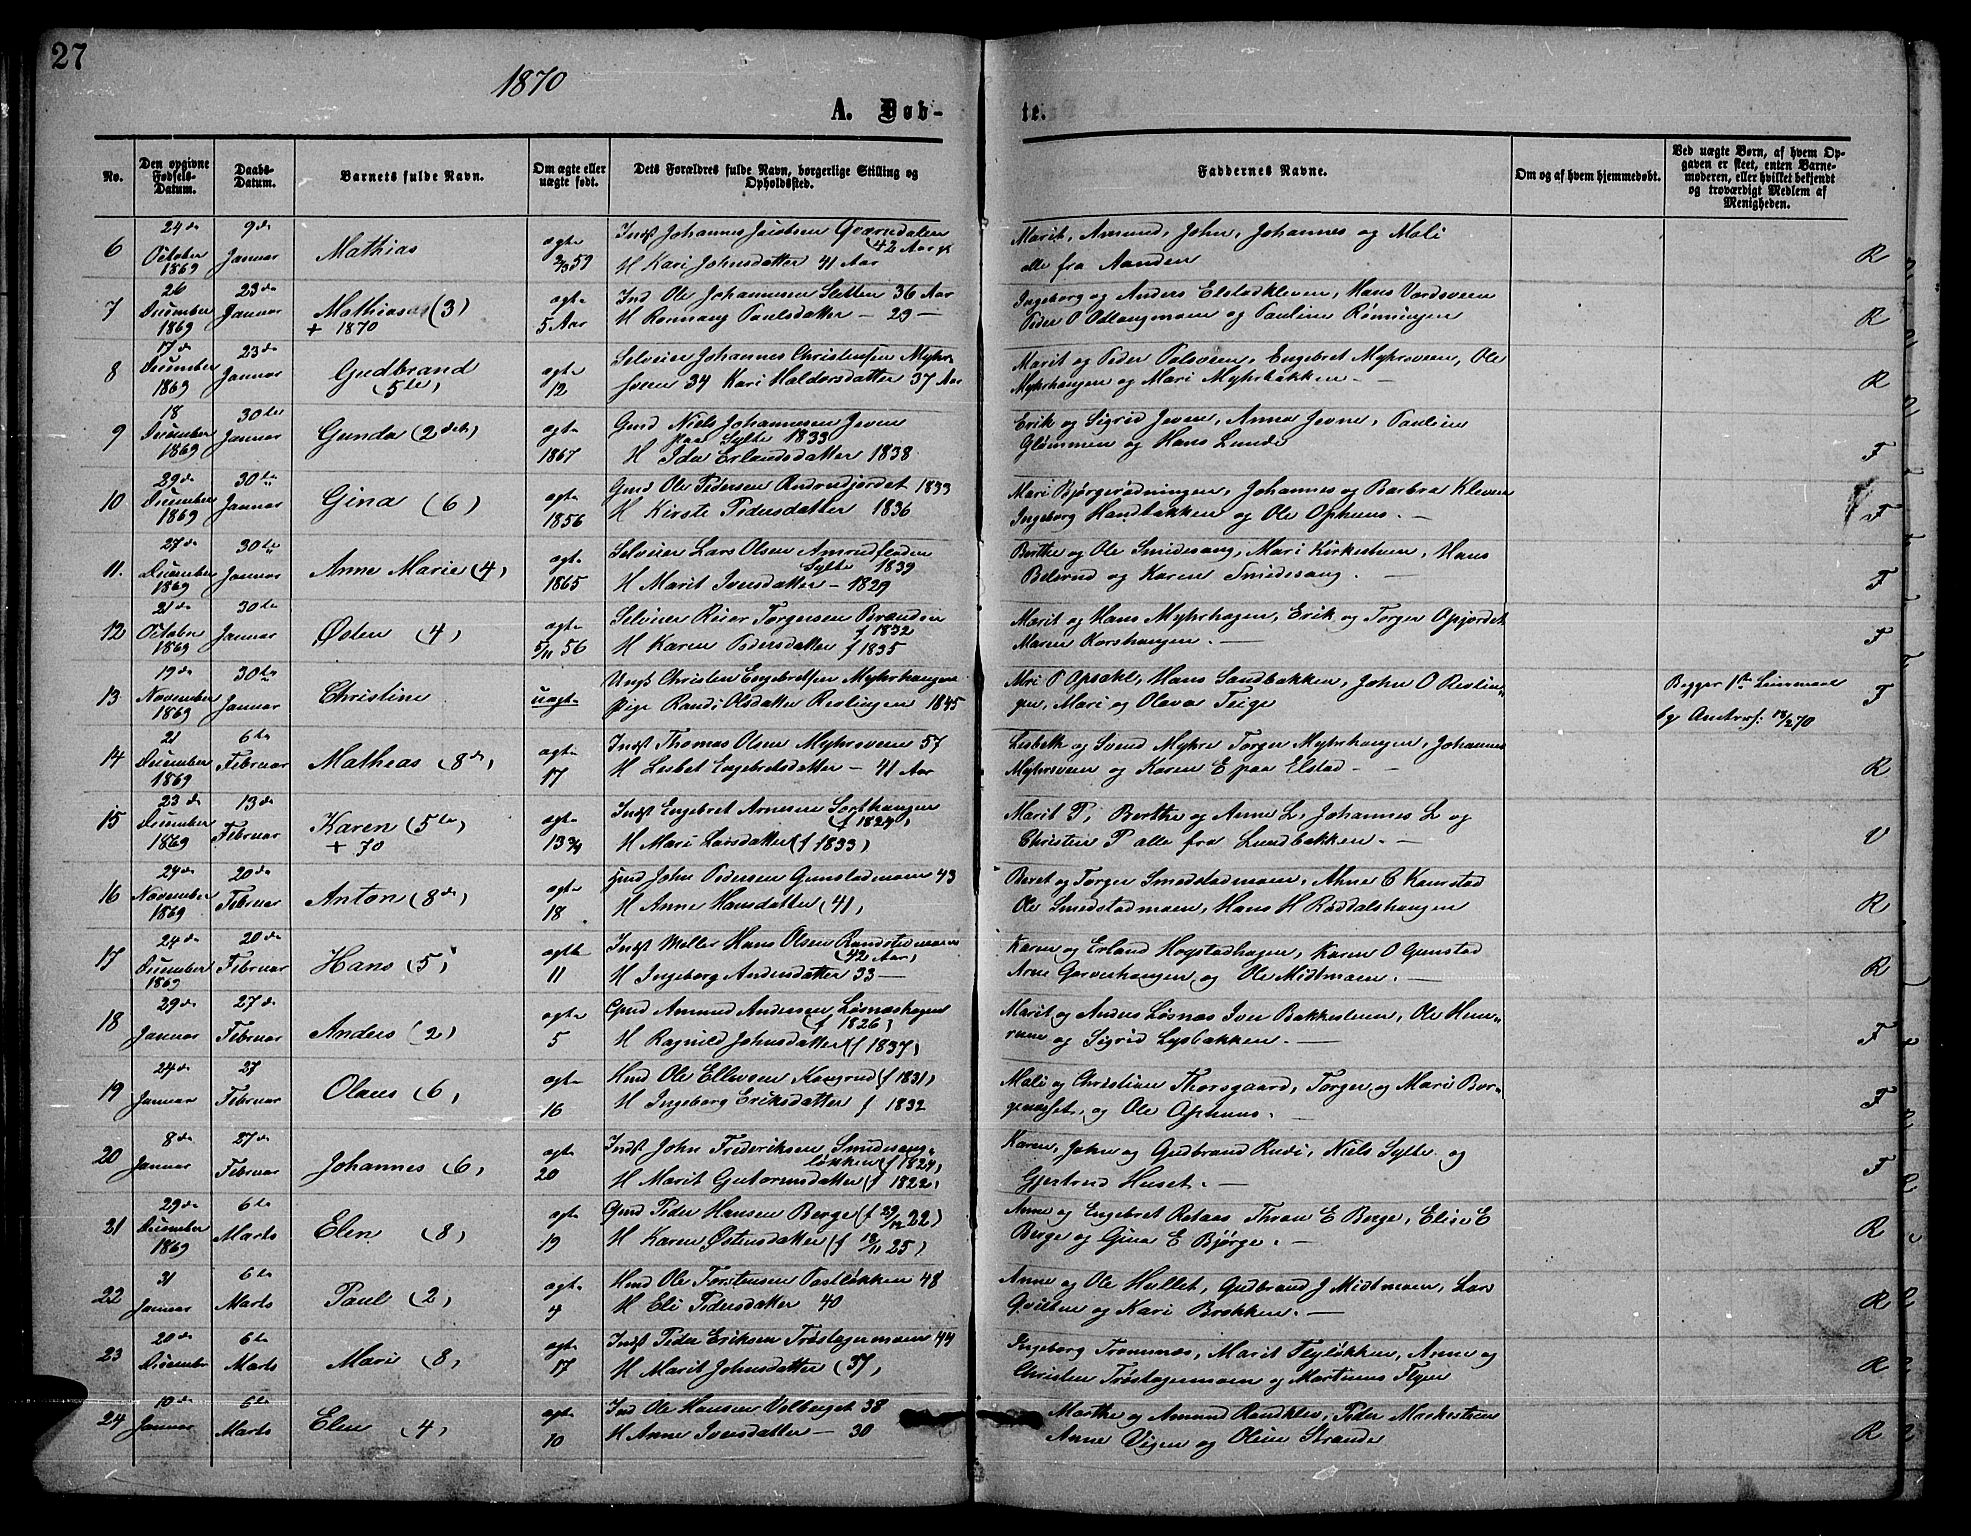 27
1870
A. Døbte.
No.
Den opgivne Fødsels-Datum.
Daabs-Datum.
Barnets fulde Navn.
Om ægte eller uægte født.
Dets Forældres fulde Navn, borgerlige Stilling og Opholdssted.
Faddernes Navne.
Om og af hvem hjemmedøbt.
Ved uægte Børn, af hvem Opgaven er skeet, enten Barnemoderen, eller hvilket bekjendt og troværdigt Medlem af Menigheden.
6 24de October 1869 9de Januar Mathias ægte 2/3 59 Indst Johannes Jacobsen Qværndalen 42 Aar
H Kari Johnsdatter 41 Aar
Marit, Amund, John, Johannes og Mali
alle fra Aanden R
7 26 December 1869 23de Januar Mathias (3) + 1870 ægte 5 Aar Ind Ole Johannesen Sletten 36 Aar
H Ronnaug Paulsdatter — 29 —
Ingeborg og Anders Elstadkleven, Hans Vordsveen
Peder O Odlaugmoen og Pauline Rønningen R
8 17de December 1869 23de Januar Gudbrand (5te) ægte 12 Selveier Johannes Christensen Myhr-
sveen 34 Kari Haldorsdatter 37 Aar
Marit og Peder Polsveen, Engebret Myhrsveen, Ole
Myhrhaugen og Mari Myhrbakken. — R
9 18 December 1869 30te Januar Gunda (2det) ægte 1867 Gmd Niels Johannesen Jevne
paa Sylte 1833
H Ida Erlandsdatter 1838
Erik og Sigrid Jevne, Anna Jevne, Pauline
Glømmen og Hans Lunde F
10 29de December 1869 30te Januar Gina (6) ægte 1856 Gmd Ole Pedersen Rudrudjordet 1833
H Kirsti Pedersdatter 1836
Mari Bjørgerødningen, Johannes og Barbra Kleven
Ingeborg Haugbakken og Ole Ophuus. — F
11. 27de December 1869 30te Januar Anne Marie (4) ægte 1865 Selveier Lars Olsen Amrudfloden
Sylte 1839
H Marit Iversdatter — 1829
Berthe og Ole Smidesang, Mari Kirkestuen, Hans
Belsrud og Karen Smidesang. — F
12 21de October 1869 30te Januar Østen (4) ægte 5/11 56 Selveier Reier Torgersen Brænden
f 1832
H Karen Pedersdatter f 1835
Marit og Hans Myhrhagen, Erik og Torger Opjordet
Maren Korshaugen. — F
13 19de November 1869 30te Januar Christine uægte Ungk Christen Engebretsen Myhrhaugen
Pige Randi Olsdatter Reslingen 1845
Mri O Opsahl, Hans Sandbakken, John O Reslin-
gen, Mari og Olava Teige
Begges 1ste Leiermaal
F
14 21 December 1869 6te Februar Mathias (8de) ægte 17 Indst Thomas Olsen Myhrsveen 57
H Lisbet Engebretsdatter — 41 Aar
Lisbeth og Svend Myhre Torger Myhrhaugen, Johannes
Myhrsveen og Karen E paa Elstad — R
15 23de December 1869 13de Februar Karen (5te) + 70 ægte 13 3/4 Indst Engebret Arnesen Sorthaugen
(f 1824)
H Mari Larsdatter (f 1833)
Marit P, Berthe og Anne L, Johannes L og
Christen P alle fra Lundbakken. — V
16 24de November 1869 20de Februar Anton (8de) ægte 18 Gmd John Pedersen Gunstadmoen 43
H Anne Hansdatter (41)
Beret og Torger Smedstadmoen, Ahne C Kamstad
Ole Smedstadmoen, Hans H Røddalshaugen R
17 24de December 1869 20de Februar Hans (5) ægte 11 Indst Møller Hans Olsen Randstadmoen
(42 Aar)
H Ingeborg Andersdatter 33 —
Karen og Erland Hogstadhagen, Karen O Gunstad
Arne Garverhaugen og Ole Midtmoen. — R
18 29de Januar 27de Februar Anders (2) ægte 5 Gmd Amund Andersen Løsnæshagen
(f 1826)
H Ragnild Johnsdatter (f 1837)
Marit og Anders Løsnæs Iver Bakkestuen, Ole Hem-
rum og Sigrid Lysbakken. — F
19 24de Januar 27 Februar Olaus (6) ægte 16 Hmd Ole Ellevsen Kongrud (f 1831)
H Ingeborg Eriksdatter f 1832
Mali og Christian Thorsgaard, Torger og Mari Bor-
genæsset, og Ole Ophuus. F
20 8de Januar 27de Februar Johannes (6) ægte 20 Indst John Frederiksen Smidesang-
løkken (f 1824)
H Marit Gutormsdatter (f 1822)
Karen, John og Gudbrand Rudi, Niels Sylte og
Gjertrud Huset. — F
21 29de December 1869 6te Marts Elen (8) ægte 19 Gmd Peder Hansen Berge (f 29/12 22)
H Karen Østensdatter (f 18/11 25)
Anne og Engebret Rolaas Thron E Berge, Elise E
Berge og Gina E Bjørge. — R
22 31 Januar 6te Marts Paul (2) ægte 4 Hmd Ole Torstensen Tostløkken 48
H Eli Pedersdatter 40
Anne og Ole Hullet, Gudbrand J Midtmoen, Lars
Qvilten og Kari Brokken. — R
23 20de December 6te Marts Mari (8) ægte 17 Indst Peder Eriksen Trøstagermoen 44
H Marit Johnsdatter (37)
Ingeborg Tromnæs, Marit Flyløkken, Anne og
Christen Trøstagermoen og Martinus Flyen R
24 10de Januar 6te Marts Elen (4) ægte 10 Ind Ole Hansen Volberget 38
H Anne Iversdatter — 30
Marthe og Amund Randklev, Peder Markestuen
Anne Vigen og Oline Strande R